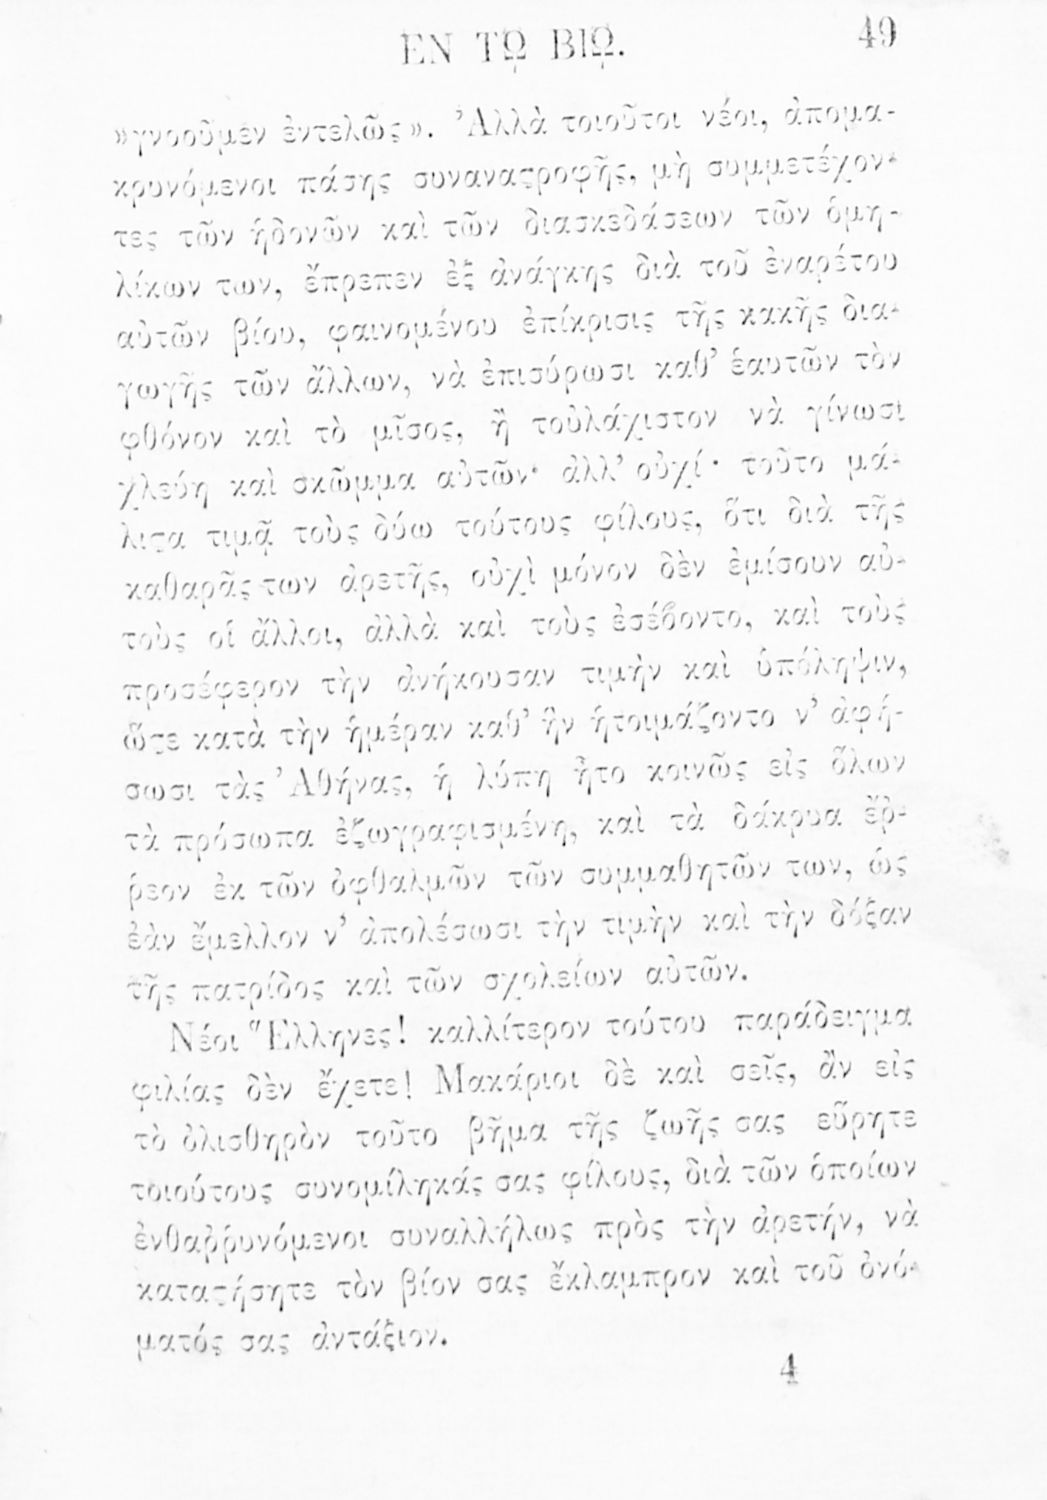 ΕΝ Τῼ ΒΙῼ. 49
»γνοοῦμεν ἐντελῶς». Ἀλλὰ τοιοῦτοι νέοι, ἀπομα-
κρυνόμενοι πάσης συναναϛροφῆς, μὴ συμμετέχον-
τες τῶν ἡδονῶν καὶ τῶν διασκεδάσεων τῶν ὁμη-
λίκων των, ἔπρεπεν ἐξ ἀνάγκης διὰ τοῦ ἐναρέτου
αὐτῶν βίου, φαινομένου ἐπίκρισις τῆς κακῆς δια-
γωγῆς τῶν ἄλλων, νὰ ἐπισύρωσι καθ’ ἑαυτῶν τὸν
φθόνον καὶ τὸ μῖσος, ἢ τοὐλάχιστον νὰ γίνωσι
χλεύη καὶ σκῶμμα αὐτῶν· ἀλλ’ οὐχί· τοῦτο μά-
λιϛα τιμᾷ τοὺς δύω τούτους φίλους, ὅτι διὰ τῆς
καθαρᾶς των ἀρετῆς, οὐχὶ μόνον δὲν ἐμίσουν αὐ-
τοὺς οἱ ἄλλοι, ἀλλὰ καὶ τοὺς ἐσέβοντο, καὶ τοὺς
προσέφερον τὴν ἀνήκουσαν τιμὴν καὶ ὑπόληψιν,
ὥϛε κατὰ τὴν ἡμέραν καθ’ ἣν ἡτοιμάζοντο ν’ ἀφή-
σωσι τὰς Ἀθήνας, ἡ λύπη ἦτο κοινῶς εἰς ὅλων
τὰ πρόσωπα ἐζωγραφισμένη, καὶ τὰ δάκρυα ἔῤ-
ῥεον ἐκ τῶν ὀφθαλμῶν τῶν συμμαθητῶν των, ὡς
ἐὰν ἔμελλον ν’ ἀπολέσωσι τὴν τιμὴν καὶ τὴν δόξαν
τῆς πατρίδος καὶ τῶν σχολείων αὐτῶν.
Νέοι Ἕλληνες! καλλίτερον τούτου παράδειγμα
φιλίας δὲν ἔχετε! Μακάριοι δὲ καὶ σεῖς, ἂν εἰς
τὸ ὀλισθηρὸν τοῦτο βῆμα τῆς ζωῆς σας εὕρητε
τοιούτους συνομίληκάς σας φίλους, διὰ τῶν ὁποίων
ἐνθαῤῥυνόμενοι συναλλήλως πρὸς τὴν ἀρετήν, νὰ
καταϛήσητε τὸν βίον σας ἔκλαμπρον καὶ τοῦ ὀνό-
ματός σας ἀντάξιον.
4